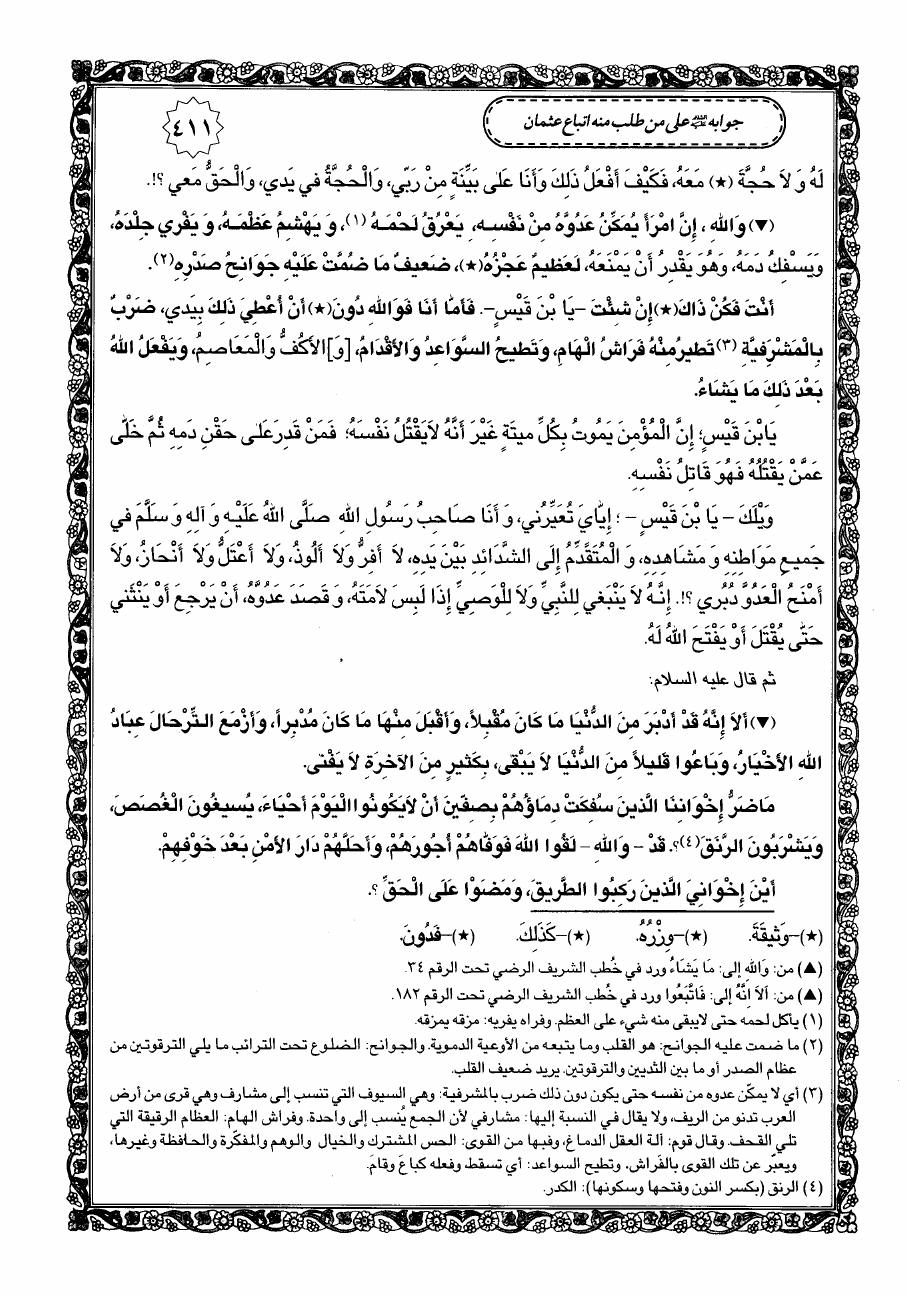 جوابه عليه السلام على من طلب منه اتباع عثمان
٤١١
لَهُ وَ لاَ حُجَّةَ (★) مَعَهُ، فَكَيْفَ أَفْعَلُ ذَلِكَ وَأَنَا عَلى بَيِّنَةٍ مِنْ رَبِّي، وَالْحُجَّةُ في يَدي، وَالْحَقُّ مَعي ؟!.
(▼) وَاللهِ ، إِنَّ امْرَأً يُمَكِّنُ عَدُوَّهُ مِنْ نَفْسِهِ، يَعْرُقُ لَحْمَهُ (١)، وَ يَهْشِمُ عَظْمَهُ، وَ يَفْري جِلْدَهُ،
وَيَسْفِكُ دَمَهُ، وَهُوَ يَقْدِرُ أَنْ يَمْنَعَهُ، لَعَظيمٌ عَجْزُهُ(★)، ضَعيفٌ مَا ضُمَّتْ عَلَيْهِ جَوَانِحُ صَدْرِهِ(٢).
أَنْتَ فَكُنْ ذَاكَ(★)إِنْ شِئْتَ -يَا بْنَ قَيْسٍ-. فَأَمَّا أَنَا فَوَاللهِ دُونَ(★)أَنْ أُعْطِيَ ذَلِكَ بِيَدي، ضَرْبٌ
بِالْمَشْرَفِيَّةِ (٣)تَطيرُمِنْهُ فَرَاشُ الْهَامِ، وَتَطيحُ السَّوَاعِدُ وَالأَقْدَامُ، [وَ]الأَكُفُّ وَالْمَعَاصِمُ، وَيَفْعَلُ اللهُ
بَعْدَ ذَلِكَ مَا يَشَاءُ.
يَابْنَ قَيْسٍ؛ إِنَّ الْمُؤْمِنَ يَمُوتُ بِكُلِّ ميتَةٍ غَيْرَ أَنَّهُ لاَيَقْتُلُ نَفْسَهُ؛ فَمَنْ قَدَرَعَلى حَقْنِ دَمِهِ ثُمَّ خَلّى
عَمَّنْ يَقْتُلُهُ فَهُوَ قَاتِلُ نَفْسِهِ.
وَيْلَكَ - يَا بْنَ قَيْسٍ - ؛ إِيَّايَ تُعَيِّرُني، وَ أَنَا صَاحِبُ رَسُولِ اللهِ صَلَّى اللهُ عَلَيْهِ وَ آلِهِ وَ سَلَّمَ في
جَميعِ مَوَاطِنِهِ وَ مَشَاهِدِهِ، وَ الْمُتَقَدِّمُ إِلَى الشَّدَائِدِ بَيْنَ يَدِهِ، لاَ أَفِرُّ وَلاَ أَلُوذُ، وَلاَ أَعْتَلُّ وَلاَ أَنْحَازُ، وَلاَ
أَمْنَحُ الْعَدُوَّ دُبُري ؟!. إِنَّهُ لاَ يَنْبَغي لِلنَّبِيِّ وَلاَ لِلْوَصِيِّ إِذَا لَبِسَ لاَمَتَهُ، وَ قَصَدَ عَدُوَّهُ، أَنْ يَرْجِعَ أَوْ يَنْثَني
حَتّى يُقْتَلَ أَوْ يَفْتَحَ اللهُ لَهُ.
ثم قال عليه السلام:
(▼) أَلاَ إِنَّهُ قَدْ أَدْبَرَ مِنَ الدُّنْيَا مَا كَانَ مُقْبِلاً، وَأَقْبَلَ مِنْهَا مَا كَانَ مُدْبِراً، وَأَزْمَعَ التِّرْحَالَ عِبَادُ
اللهِ الأَخْيَارُ، وَبَاعُوا قَليلاً مِنَ الدُّنْيَا لاَ يَبْقى، بِكَثيرٍ مِنَ الآخِرَةِ لاَ يَفْنى.
مَاضَرَّ إِخْوَانَنَا الَّذينَ سُفِكَتْ دِمَاؤُهُمْ بِصِفّينَ أَنْ لاَيَكُونُوا الْيَوْمَ أَحْيَاءً، يُسيغُونَ الْغُصَصَ،
وَيَشْرَبُونَ الرَّنَقَ(٤)؟. قَدْ - وَاللهِ - لَقُوا اللهَ فَوَفَّاهُمْ أُجُورَهُمْ، وَأَحَلَّهُمْ دَارَ الأَمْنِ بَعْدَ خَوْفِهِمْ.
أَيْنَ إِخْوَانِيَ الَّذينَ رَكِبُوا الطَّريقَ، وَمَضَوْا عَلَى الْحَقِّ ؟.
(★)-وَثيقَةَ. (★)-وِزْرُهُ. (★)-كَذَلِكَ. (★)-فَدُونَ.
(▲) من: وَاللهِ إلى: مَا يَشَاءُ ورد في خُطب الشريف الرضي تحت الرقم ٣٤.
(▲) من: أَلاَ إِنَّهُ إلى: فَاتَّبَعُوا ورد في خُطب الشريف الرضي تحت الرقم ١٨٢.
(١) يأكل لحمه حتى لايبقى منه شيء على العظم. وفراه يفريه: مزقه يمزقه.
(٢) ما ضمت عليه الجوانح: هو القلب وما يتبعه من الأوعية الدموية. والجوانح: الضلوع تحت الترائب مما يلي الترقوتين من
عظام الصدر أو ما بين الثديين والترقوتين. يريد ضعيف القلب.
(٣) أي لا يمكّن عدوه من نفسه حتى يكون دون ذلك ضرب بالمشرفية: وهي السيوف التي تنسب إلى مشارف وهي قرى من أرض
العرب تدنو من الريف، ولا يقال في النسبة إليها: مشارفي لأن الجمع يُنسب إلى واحدة. وفراش الهام: العظام الرقيقة التي
تلي القحف. وقال قوم: آلة العقل الدماغ، وفيها من القوى: الحس المشترك والخيال والوهم والمفكّرة والحافظة وغيرها،
ويعبّر عن تلك القوى بالفَراش. وتطيح السواعد: أي تسقط، وفعله كباعَ وقامَ.
(٤) الرنق (بكسر النون وفتحها وسكونها): الكدر.